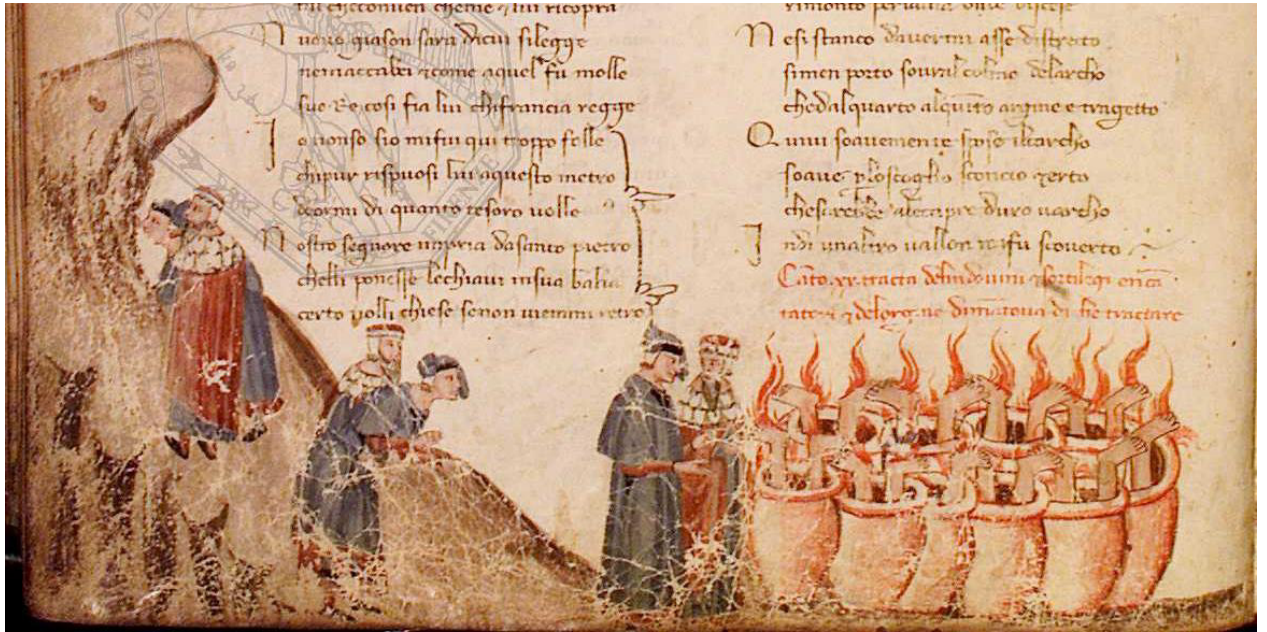 cheme 7 lui ricopra
Nuouo giason sara dicui silegge
nemaccabei 7 come aquel fu molle
suo Re cosi fia lui chifrancia regge
Io nonso sio mifui qui troppo folle
chipur rispuosi lui aquesto metro
deormi di quanto tesoro uolle
Nostro segnore inpria dasanto pietro
chelli ponesse lechiaui insua balia
certo nolli chiese senon uiemmi retro
rimonto per
Ne si stanco dauermi asse distrecto
simen porto soural colmo delarcho
chedalquarto alquinto argine e tragetto
Quiui soauemente spose ilcarcho
soaue plo scoglio sconcio 7 erto
duro uarcho
Indi unaltro uallon mifu scouerto
tracta delindouini 7 sortilegi
7 dimantoua di tractare